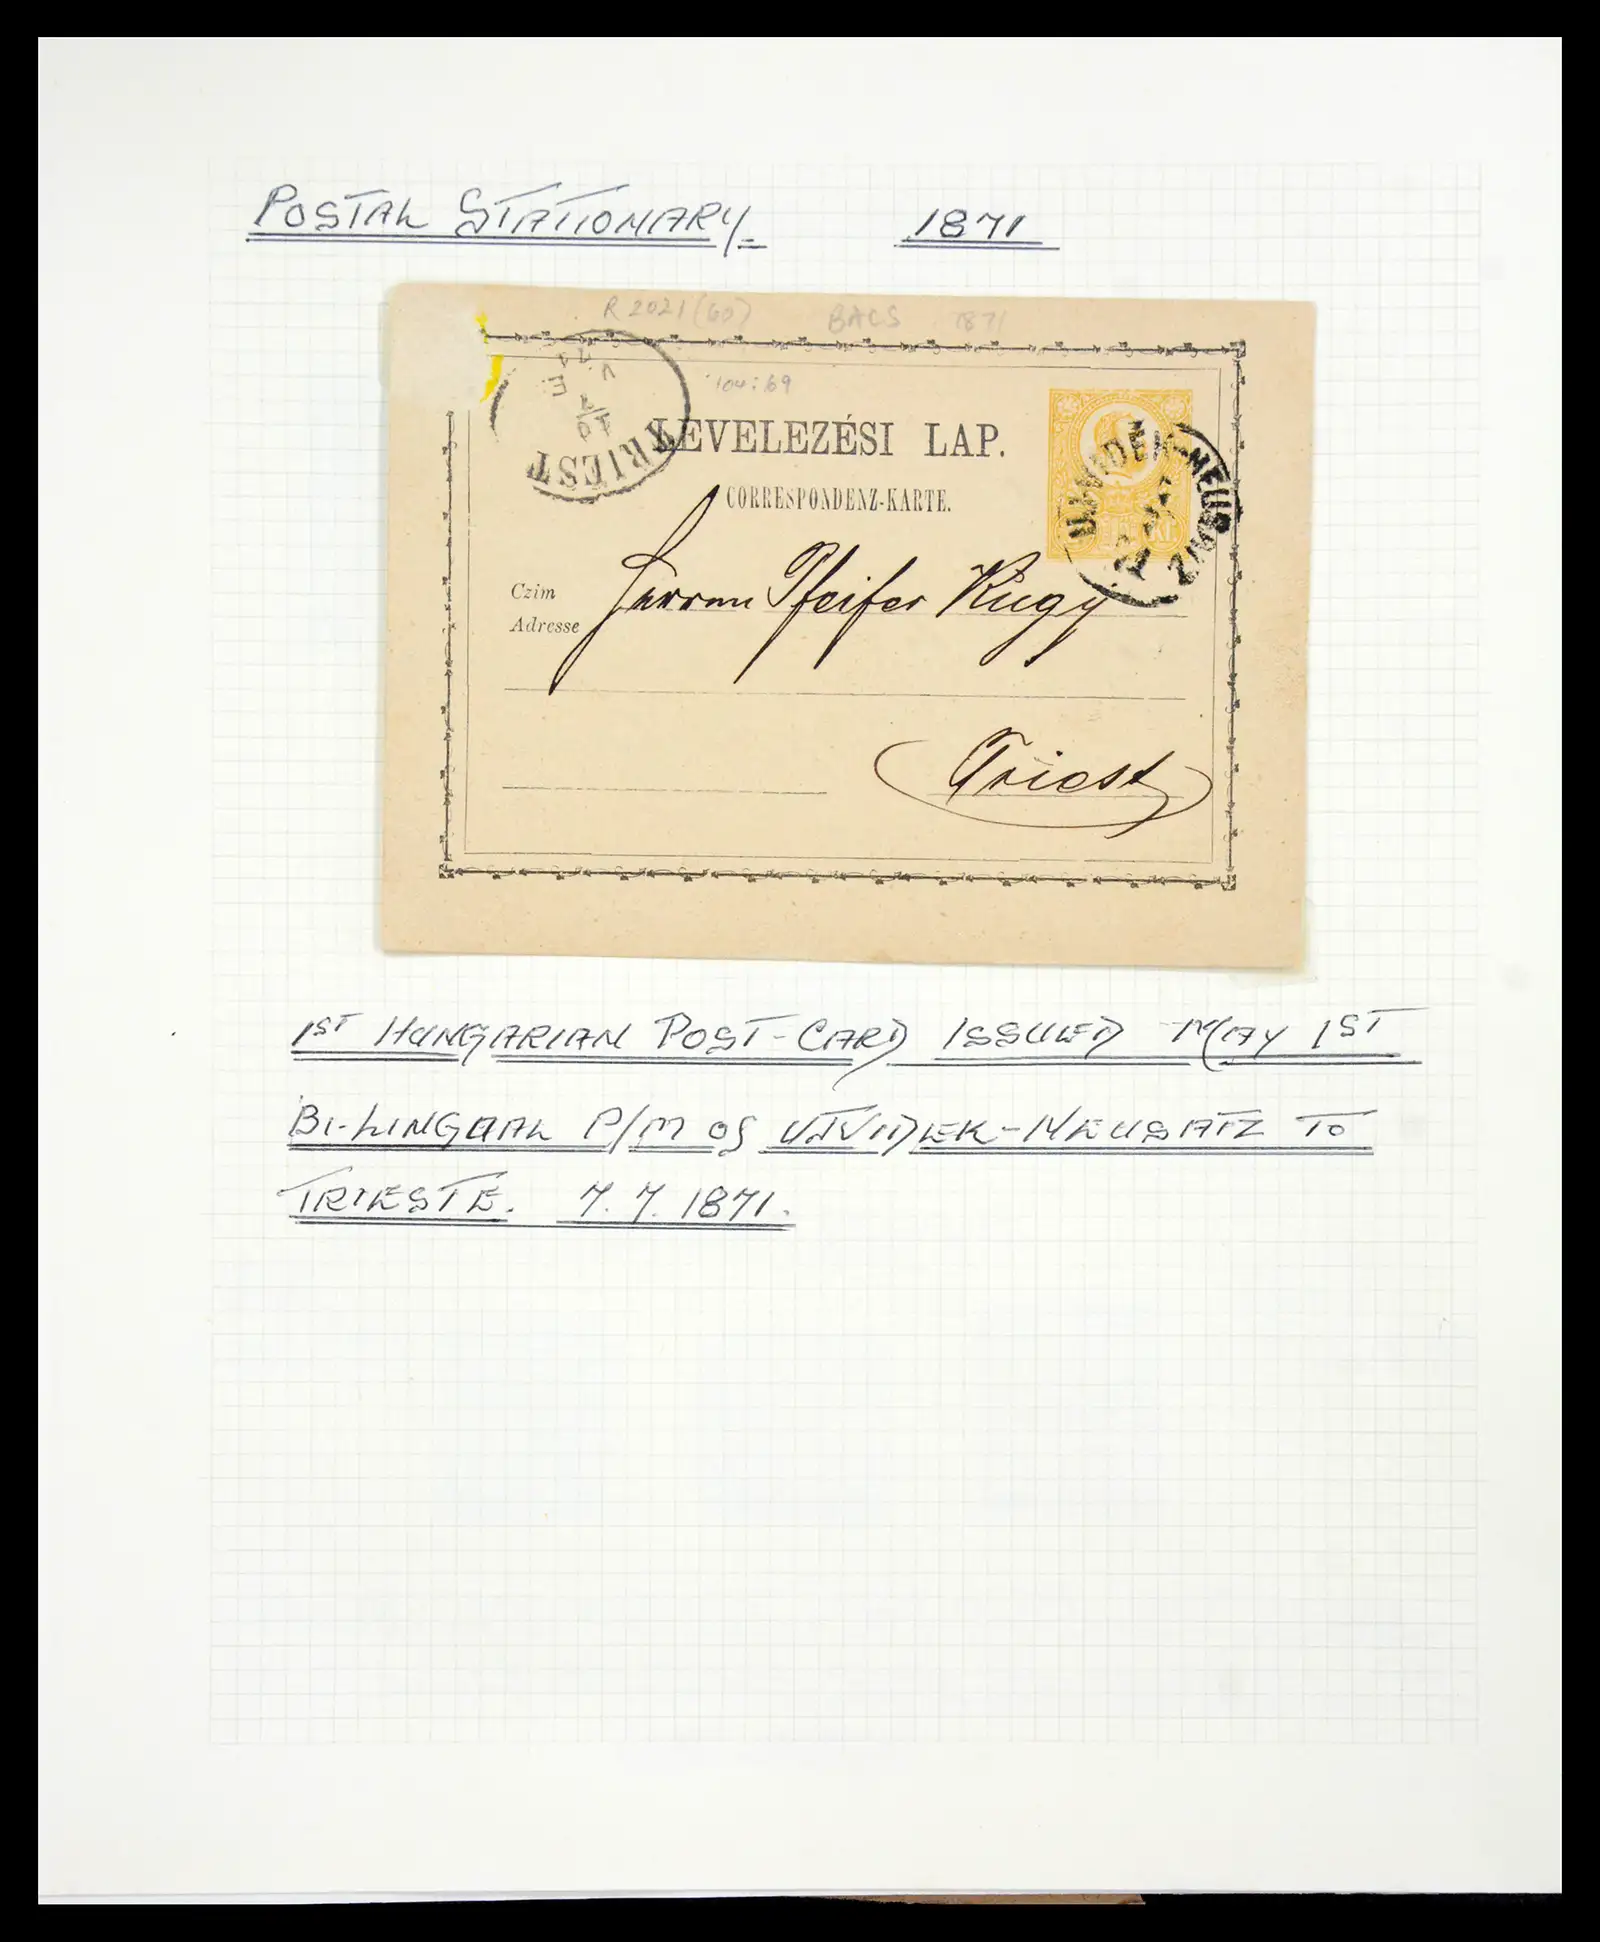 POSTAL STATIONARY 1871
R 2021 (60) BACS 1871
104:69
TRIEST
10/7
71
V.
E.
LEVELEZÉSI LAP.
CORRESPONDENZ-KARTE.
UJVIDEK-NEUSATZ
KR.
Czim
Adresse
Herren Pfeifer Kugy
Triest
1ST HUNGARIAN POST-CARD ISSUED MAY 1ST
BI-LINGUAL P/M OF UJVIDEK-NEUSATZ TO
TRIESTE. 7. 7. 1871.